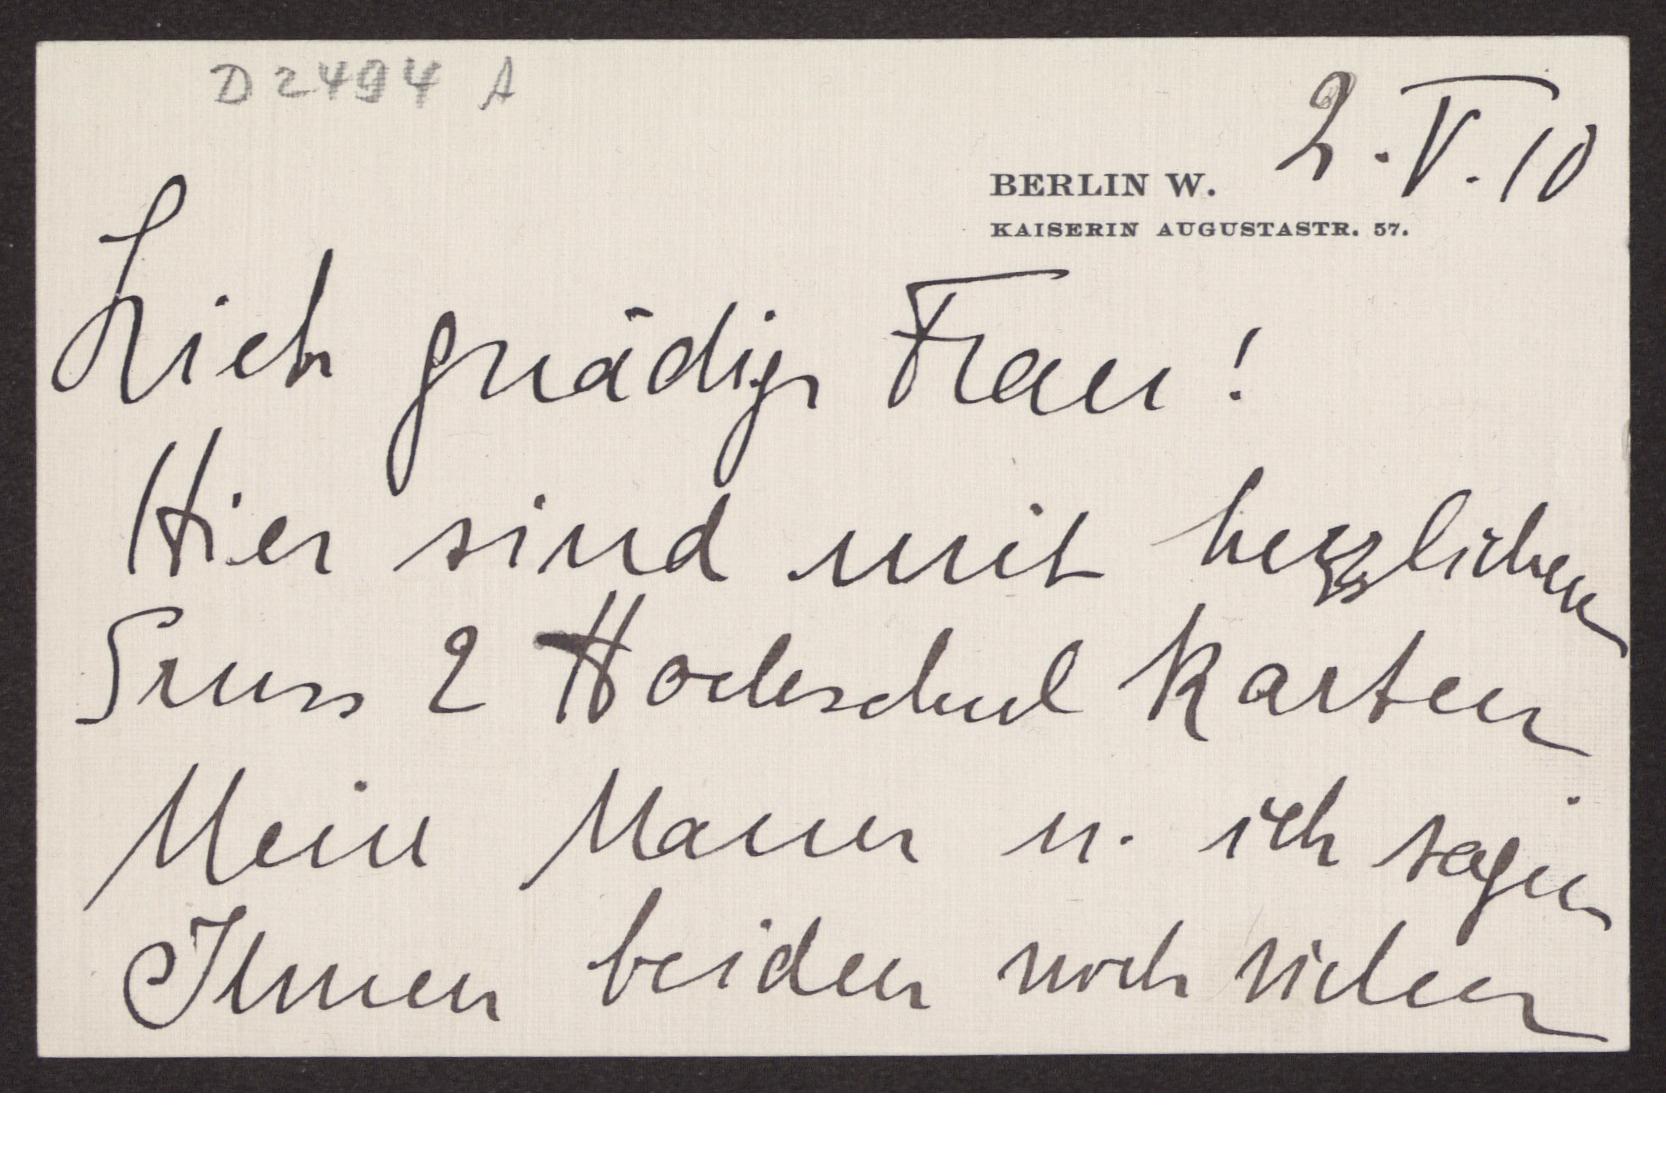 D 2494 A
2.V.10
BERLIN W.
KAISERIN AUGUSTASTR. 57.
Liebe gnädige Frau!
Hier sind mit herzlichen
Gruss 2 Hochschul Karten
Mein Mann u. ich sagen
Ihnen beiden noch vielen